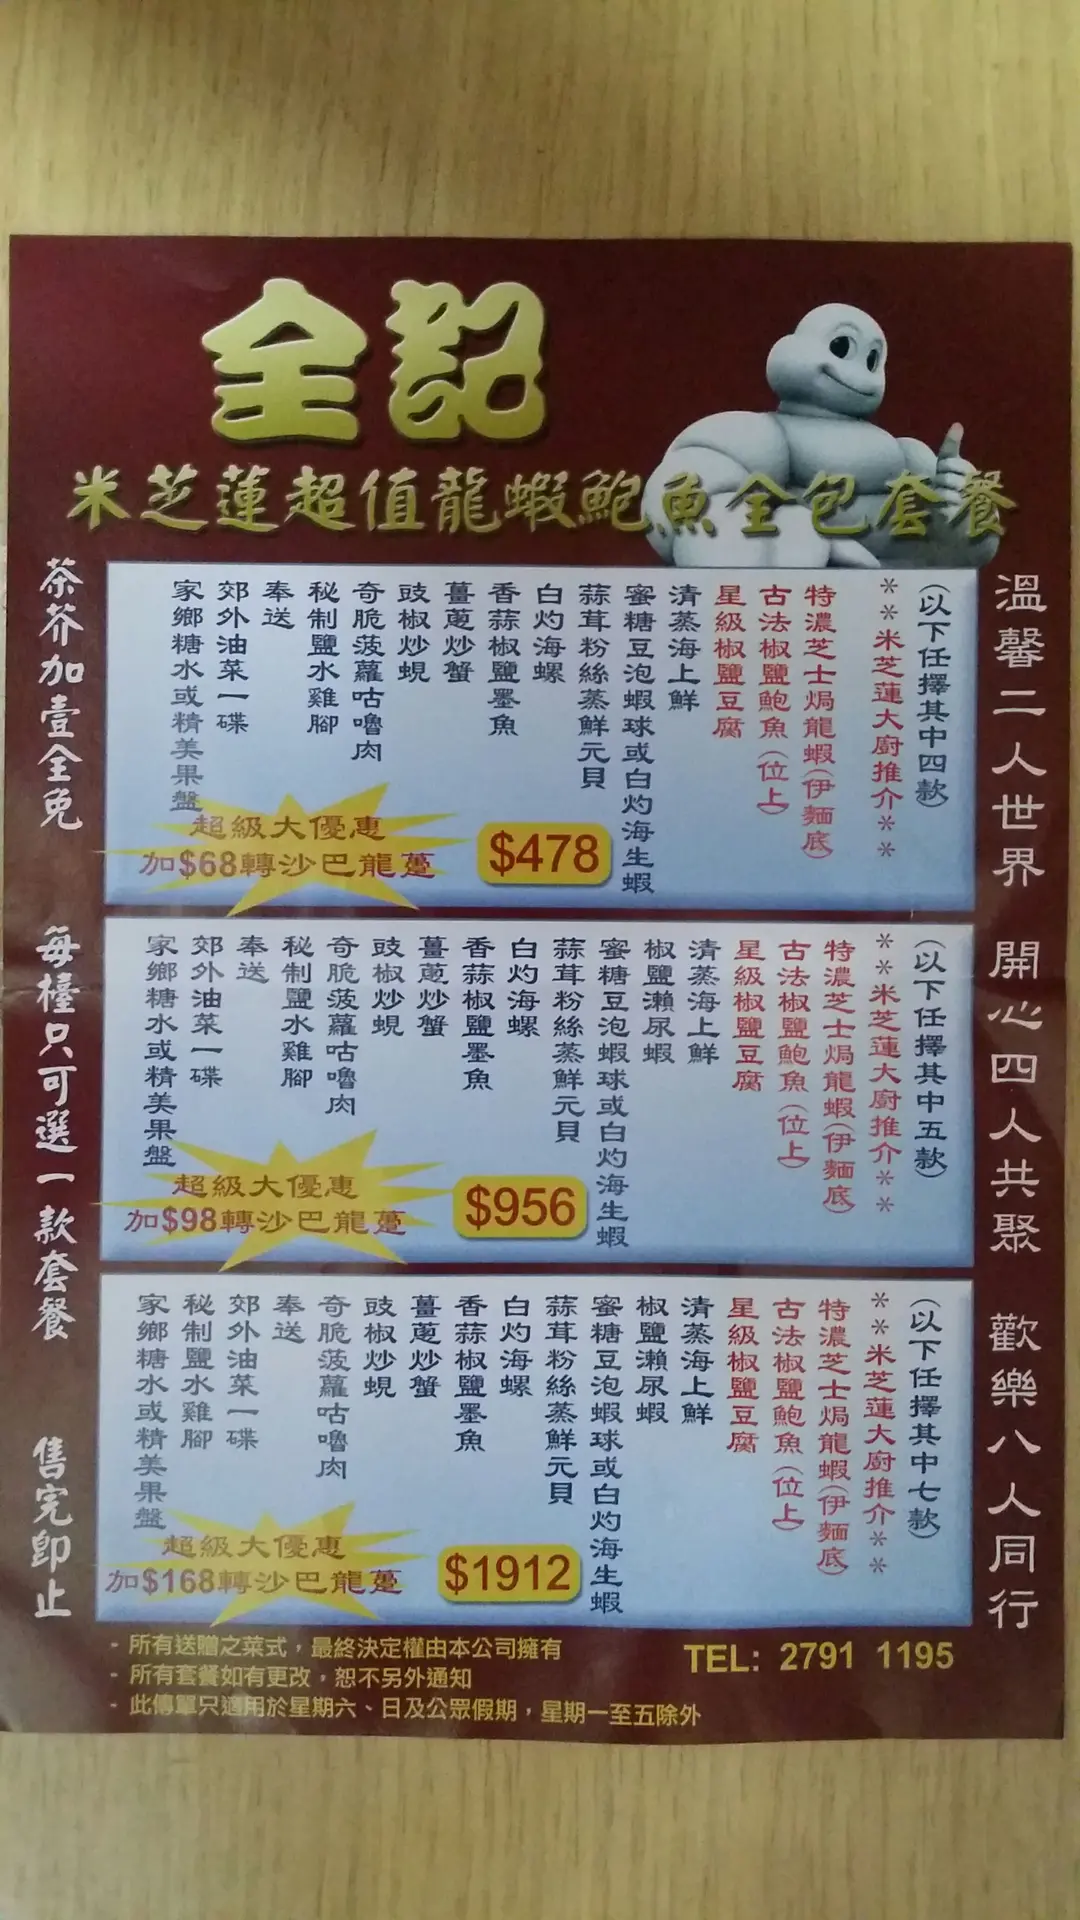 全記
米芝蓮超值龍蝦鮑魚全包套餐
溫馨二人世界
開心四人共聚
歡樂八人同行
(以下任擇其中四款)
**米芝蓮大廚推介**
特濃芝士焗龍蝦(伊麵底)
古法椒鹽鮑魚(位上)
星級椒鹽豆腐
清蒸海上鮮
蜜糖豆泡蝦球或白灼海生蝦
蒜茸粉絲蒸鮮元貝
白灼海螺
香蒜椒鹽墨魚
薑蔥炒蟹
豉椒炒蜆
奇脆菠蘿咕嚕肉
秘制鹽水雞腳
奉送
郊外油菜一碟
家鄉糖水或精美果盤
超級大優惠
加$68轉沙巴龍躉
$478
(以下任擇其中五款)
**米芝蓮大廚推介**
特濃芝士焗龍蝦(伊麵底)
古法椒鹽鮑魚(位上)
星級椒鹽豆腐
清蒸海上鮮
椒鹽瀨尿蝦
蜜糖豆泡蝦球或白灼海生蝦
蒜茸粉絲蒸鮮元貝
白灼海螺
香蒜椒鹽墨魚
薑蔥炒蟹
豉椒炒蜆
奇脆菠蘿咕嚕肉
秘制鹽水雞腳
奉送
郊外油菜一碟
家鄉糖水或精美果盤
超級大優惠
加$98轉沙巴龍躉
$956
(以下任擇其中七款)
**米芝蓮大廚推介**
特濃芝士焗龍蝦(伊麵底)
古法椒鹽鮑魚(位上)
星級椒鹽豆腐
清蒸海上鮮
椒鹽瀨尿蝦
蜜糖豆泡蝦球或白灼海生蝦
蒜茸粉絲蒸鮮元貝
白灼海螺
香蒜椒鹽墨魚
薑蔥炒蟹
豉椒炒蜆
奇脆菠蘿咕嚕肉
奉送
郊外油菜一碟
秘制鹽水雞腳
家鄉糖水或精美果盤
超級大優惠
加$168轉沙巴龍躉
$1912
茶芥加壹全免
每檯只可選一款套餐
售完即止
- 所有送贈之菜式，最終決定權由本公司擁有
- 所有套餐如有更改，恕不另外通知
- 此傳單只適用於星期六、日及公眾假期，星期一至五除外
TEL: 2791 1195